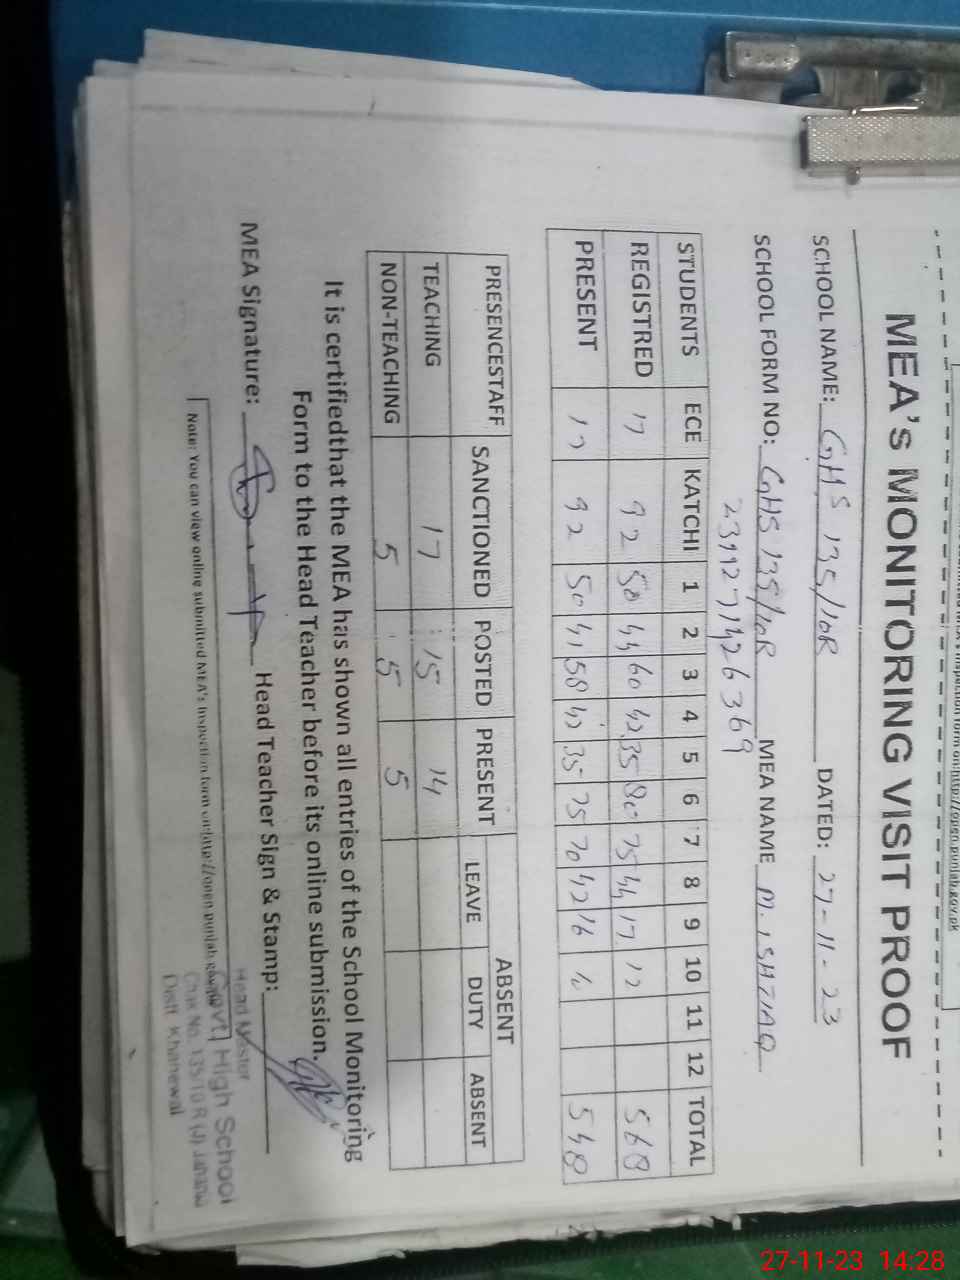 MEA's MONITORING VISIT PROOF
SCHOOL NAME: GHS 135/10R DATED: 27-11-23
SCHOOL FORM NO: GHS 135/10R MEA NAME M. ISHTIAQ
STUDENTS ECE KATCHI 1 2 3 4 5 6 7 8 9 10 11 12 TOTAL
REGISTRED 17 92 50 44 60 42 35 80 75 44 17 12 568
PRESENT 17 92 50 41 58 42 35 75 70 42 16 548
PRESENCESTAFF SANCTIONED POSTED PRESENT ABSENT
LEAVE DUTY ABSENT
TEACHING 17 15 14
NON-TEACHING 5 5 5
It is certifiedthat the MEA has shown all entries of the School Monitoring
Form to the Head Teacher before its online submission.
MEA Signature: Head Teacher Sign & Stamp:
Head Master
Govt. High School
Chak No. 135/10 R (J)
Distt. Khanewal
Note: You can view online submitted MEA's Inspection form on:http://open.punjab.gov.pk
27-11-23 14:28